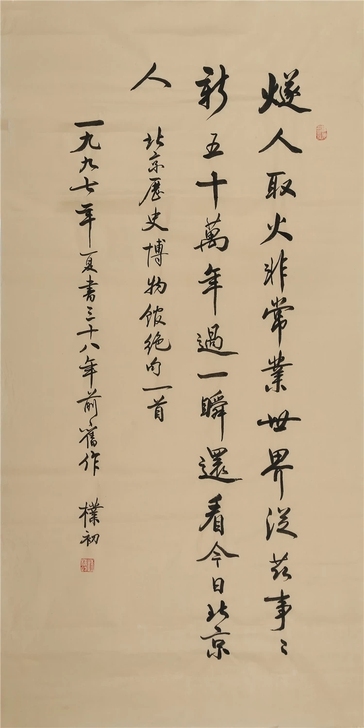 燧人取火非常業世界從茲事〻
新五十萬年過一瞬還看今日北京
人
北京歷史博物館絕句一首
一九九七年夏書三十八年前舊作 樸初